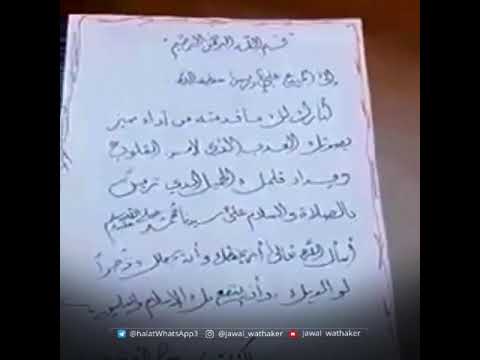 بسم الله الرحمن الرحيم
إلى
أبارك لك ما قدمته من أداء مميز
بصوتك العذب الذي لامس القلوب
وبمداد قلمك الجميل الذي تزين
بالصلاة والسلام على سيدنا محمد صلى الله عليه وسلم
أسأل الله تعالى أن يحفظك وأن يجعلك ذخراً
لوالديك وأن ينفع بك الإسلام والمسلمين
@halatWhatsApp3 @jawal_wathaker jawal_wathaker